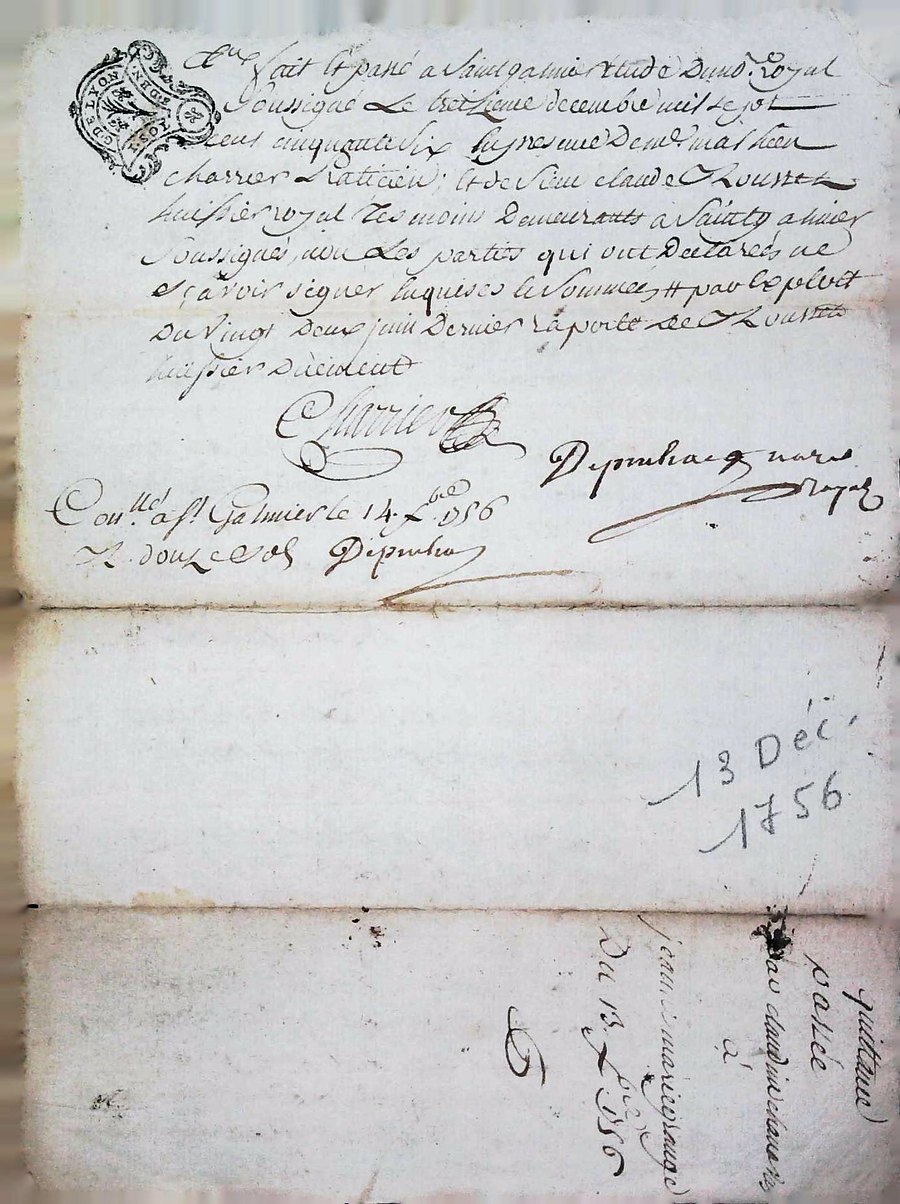 G DE LYON
fait et passé a Saintgalmier etude Du no.re Royal
Soussigné Le treizieme decembre mil sept
cent cinquante Six En presence De m.e mathieu
charrier Praticien, et de Sieur claude Rousset
huissier royal Tesmoins Demeurants a Saintgalmier
Soussignés, non Les parties qui ont Declarées ne
sçavoir signer Enquises et Sommées # par Exploit
Du Vingt Deux juin Dernier raporté de Rousset
huissier Düement
Charrier
Royal
Con.llé a s.t Galmier le 14. x.bre 1756
R. douze Sols
13 Déc.
1756
quittance
passée
par claudine
à
jeanne marie
Du 13 x.bre 1756